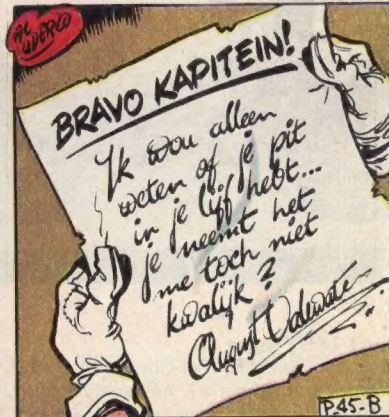 AL UDERZO
BRAVO KAPITEIN!
Ik wou alleen
weten of je pit
in je lijf hebt...
je neemt het
me toch niet
kwalijk?
August
P.45-B